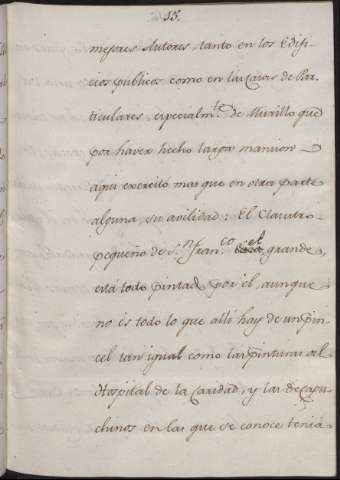 15.
mejores Autores, tanto en los Edifi-
cios publicos como en las Casas de Par-
ticulares, especialm.te de Murillo que
por haver hecho larga mansion
aqui exercitó mas que en otra parte
alguna, su avilidad: El Claustro
pequeño de S.n Fran.co el grande,
está todo pintad por él, aunque
no és todo lo que alli hay de un pin-
cel tan igual como las pinturas del
Hospital de la Caridad, y las de Capu-
chinos en las que se conoce tenia